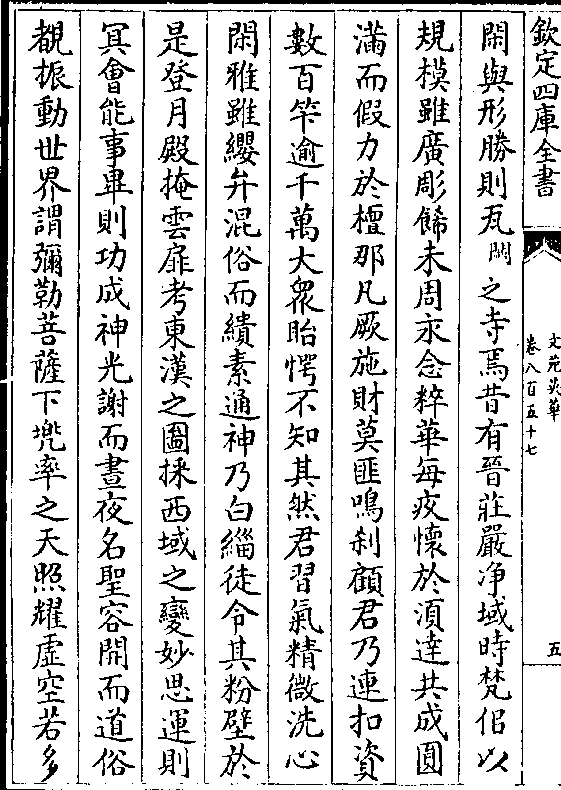 欽定四庫全書
文苑英華
卷八百五十七
五
閑與形勝則瓦闕之寺焉昔有晉莊嚴淨域時梵侣以
規模雖廣彫餙未周永念粹華每疚懷於湏達共成圓
滿而假力於檀那凡厥施財莫匪鳴刹顧君乃連扣資
數百竿逾千萬大衆眙愕不知其然君習氣精微洗心
閑雅雖纓弁混俗而繢素通神乃白緇徒令其粉壁於
是登月殿掩雲扉考東漢之圖採西域之變妙思運則
冥會能事畢則功成神光謝而晝夜名聖容開而道俗
覩振動世界謂彌勒菩薩下兠率之天照耀虛空若多